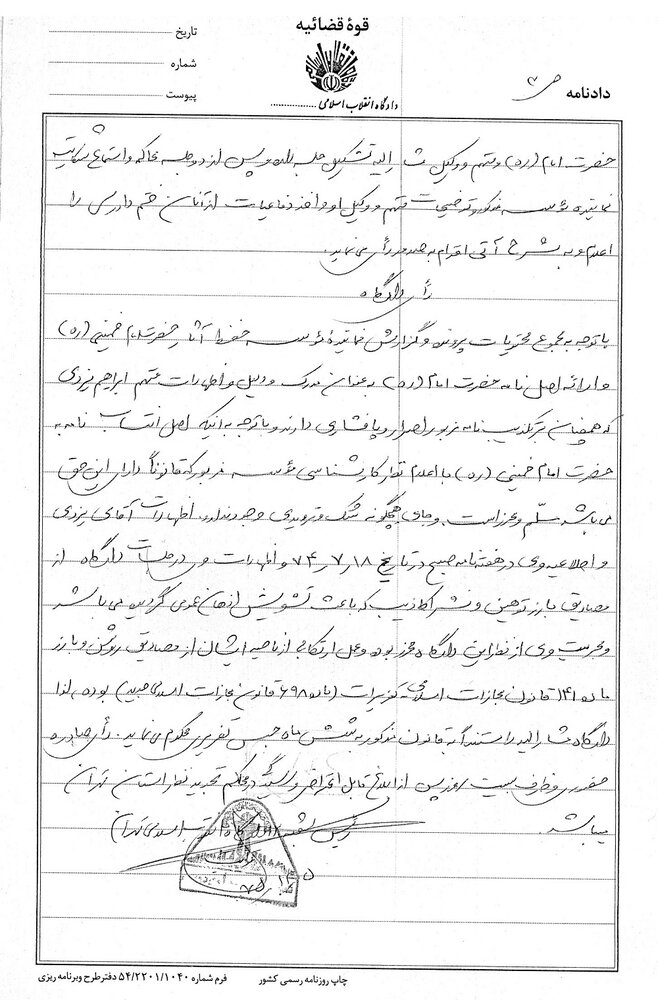 قوهٔ قضائیه
تاریخ
شماره
پیوست
دادگاه انقلاب اسلامی
دادنامه
ص ۳
حضرت امام (ره) و متهم و وکیل مشارالیه تشکیل جلسه داده و پس از دو جلسه محاکمه و استماع شکایت
نماینده مؤسسه مذکور و توضیحات متهم و وکیل او و اخذ دفاعیات از آنان ختم دادرسی را
اعلام و به شرح آتی اقدام به صدور رأی می نماید.
رأی دادگاه
با توجه به مجموع محتویات پرونده و گزارش نماینده مؤسسه حفظ آثار حضرت امام خمینی (ره)
و ارائه اصل نامه حضرت امام (ره) به عنوان مدرک و دلیل و اظهارات متهم ابراهیم یزدی
که همچنان بر تکذیب نامه مزبور اصرار و پافشاری دارند و با توجه به آنکه اصل انتساب نامه به
حضرت امام خمینی (ره) با اعلام نظر کارشناسی مؤسسه مزبور که قانوناً دارای این حق
می باشد مسلّم و محرز است و جای هیچگونه شک و تردیدی وجود ندارد. اظهارات آقای یزدی
و اطلاعیه وی در هفته نامه صبح در تاریخ ۱۸ر۷ر۷۴ و اظهارات وی در جلسات دادگاه از
مصادیق بارز توهین و نشر اکاذیب که باعث تشویش اذهان عمومی گردیده می باشد
و مجرمیت وی از نظر این دادگاه محرز بوده و عمل ارتکابی از ناحیه ایشان از مصادیق روشن و بارز
ماده ۱۴۱ قانون مجازات اسلامی تعزیرات (ماده ۶۹۸ قانون مجازات اسلامی جدید) بوده، لذا
دادگاه مشارالیه را مستنداً به قانون مذکور به شش ماه حبس تعزیری محکوم می نماید. رأی صادره
حضوری و ظرف بیست روز پس از ابلاغ قابل اعتراض و رسیدگی در محاکم تجدید نظر استان تهران
میباشد.
رئیس شعبه دادگاه انقلاب اسلامی تهران
چاپ روزنامه رسمی کشور
فرم شماره ۵۴/۲۲۰۱/۱۰۴۰ دفتر طرح و برنامه ریزی